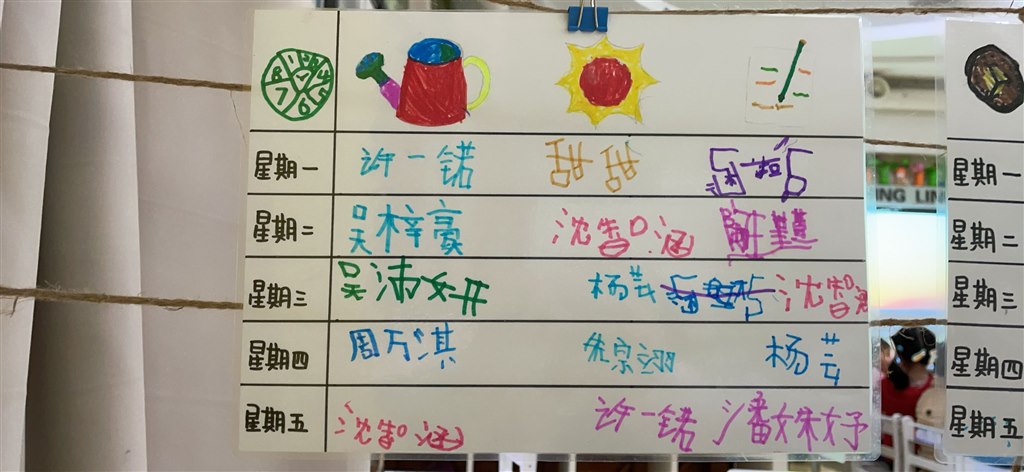 星期一 许一锘 甜甜
星期二 吴梓豪 沈智涵
星期三 吴沛妍 杨芸 沈智涵
星期四 周万淇 宗翊 杨芸
星期五 沈智涵 许一锘 潘姝妤
NG LIN
星期一
星期二
星期三
星期四
星期五